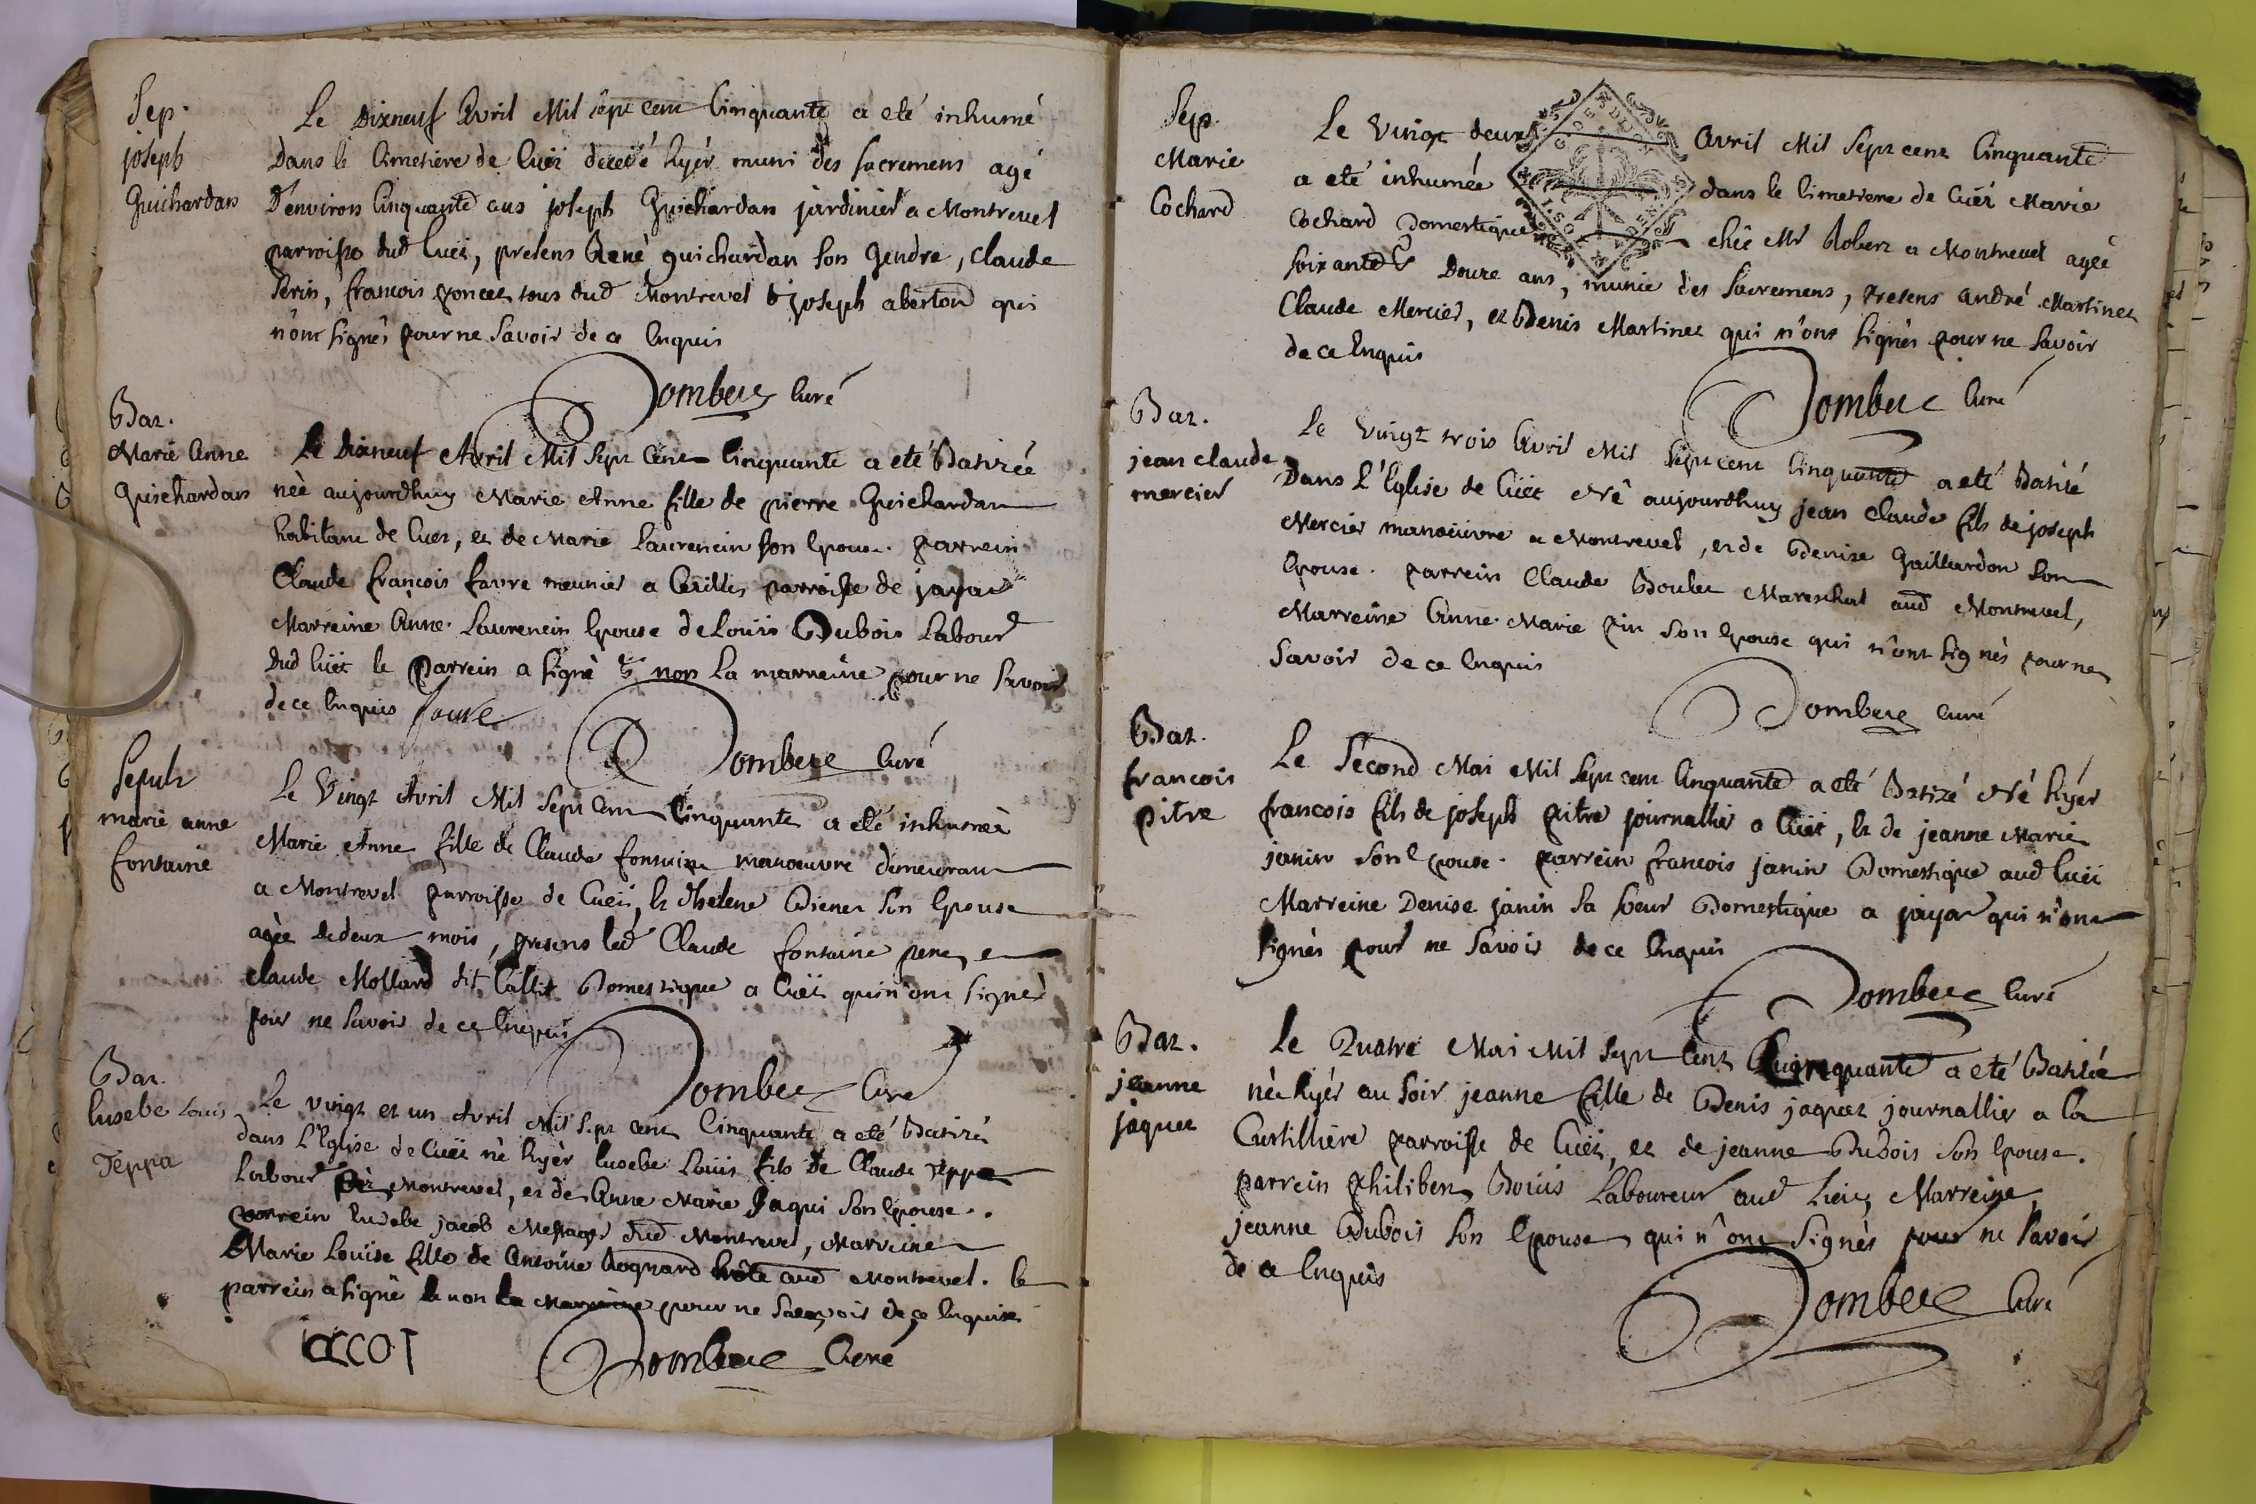 Sep.
joseph
Guichardan
Le Dixneuf Avril Mil sept cent Cinquante a eté inhumé
Dans le Cimetiere de Cuët decedé hyér muni des sacremens agé
D'environ Cinquante ans joseph Guichardan jardinier a Montrevel
parroisse dud Cuët, presens René guichardan son gendre, Claude
Perin, francois poncet tous dud Montrevel & joseph aberton qui
n'ont signés pour ne savoir de ce Enquis
Dombere Curé
Bat.
Marie Anne
Guichardan
Le Dixneuf Avril Mil Sept Cent Cinquante a eté Batizée
néé aujourdhuy Marie Anne fille de pierre Guichardan
habitant de Cuet, et de Marie Laurencin son Epouse. parrein
Claude françois favre meunier a parroisse de jayat
Marreine Anne Laurencin Epouse de Louis Dubois Labourr
dud Cuët le parrein a signé & non la marreine pour ne savoir
de ce Enquis favre
Dombere Curé
Sepult
marie anne
fontaine
Le Vingt Avril Mil Sept Cent Cinquante a eté inhumée
Marie Anne fille de Claude fontaine manoeuvre demeurant
a Montrevel parroisse de Cuët, & d'helene Dienet son Epouse
agée de deux mois, presens led Claude fontaine pere, et
claude Mollard dit Callit Domestique a Cuët qui n'ont signé
pour ne savoir de ce Enquis
Dombere Curé
Bat.
Eusebe Louis
Teppa
Le vingt et un Avril Mil Sept Cent Cinquante a eté Batizé
dans L'Eglise de Cuët né hyér Eusebe Louis fils de Claude Teppa
Labourr Montrevel, et de Anne Marie Jaqui son Epouse.
parrein Eusebe jacob Messager dud Montrevel, Marreine
Marie Louise fille de Antoine Rognard hôte aud Montrevel. le
parrein a signé & non la Marreine pour ne savoir de ce Enquise
accoj
Dombere Curé
Sep.
Marie
Cochard
Le Vingt deux Avril Mil Sept cent Cinquante
a eté inhumée dans le Cimetiere de Cuët Marie
Cochard Domestique chés Mr Robert a Montrevel agée
soixante & Douze ans, munie des Sacremens, presens andré Martinet
Claude Mercier, et Denis Martinet qui n'ont signés pour ne savoir
de ce Enquis
Dombere Curé
Bat.
jean claude
mercier
Le Vingt trois Avril Mil Sept cent Cinquante a eté Batizé
Dans l'Eglise de Cuët Né aujourdhuy jean Claude fils de joseph
Mercier manoeuvre a Montrevel, et de Denise Gaillardon son
Epouse. parrein Claude Boulet Mareschal aud Montrevel,
Marreine Anne Marie pin son Epouse qui n'ont signés pour ne
savoir de ce Enquis
Dombere Curé
Bat.
francois
pitre
Le Second Mai Mil Sept cent Cinquante a eté Batizé Né hyér
francois fils de joseph pitre journallier a Cuët, & de jeanne Marie
janin son Epouse. parrein francois janin Domestique aud Cuët
Marreine Denise janin sa soeur Domestique a jayat qui n'ont
signés pour ne savoir de ce Enquis
Dombere Curé
Bat.
jeanne
jaquet
Le Quatre Mai Mil Sept Cent Cinquante a eté Batizée
née hyér au soir jeanne fille de Denis jaquet journallier a la
Curtilliere parroisse de Cuët, et de jeanne Dubois son Epouse.
parrein philibert Bouis Laboureur aud Lieu, Marreine
jeanne Dubois son Epouse, qui n'ont signés pour ne savoir
de ce Enquis
Dombere Curé